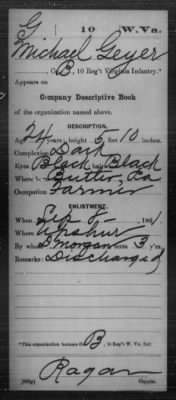 G | 10 | W.Va.
Michael Geyer
, Co. B, 10 Reg't Virginia Infantry.*
Appears on
Company Descriptive Book
of the organization named above.
DESCRIPTION.
Age 24 years; height 5 feet 10 inches.
Complexion Dark
Eyes Black; hair Black
Where born Butler, Pa
Occupation Farmer
ENLISTMENT.
When Sep 8, 1861.
Where Upshur
By whom Morgan; term 3 y'rs.
Remarks: Discharged
*This organization became Co. B, 10 Reg't W. Va. Inf.
Ragan
Copyist.